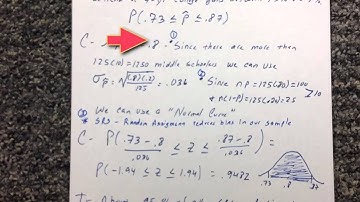 P(.73 ≤ p̂ ≤ .87)
C- .8 ① Since there are more then
125(10) = 1250 middle schoolers we can use
σp̂ = √(.8)(.2)/125 = .036 ② Since np = 125(.80) = 100
+ n(1-p) = 125(.20) = 25 ≥ 10
③ We can use a "Normal Curve"
* SRS - Random Assignment reduces bias in our sample
C- P(.73-.8/.036 ≤ z ≤ .87-.8/.036) =
P(-1.94 ≤ z ≤ 1.94) = .9482
.73 .8 .87